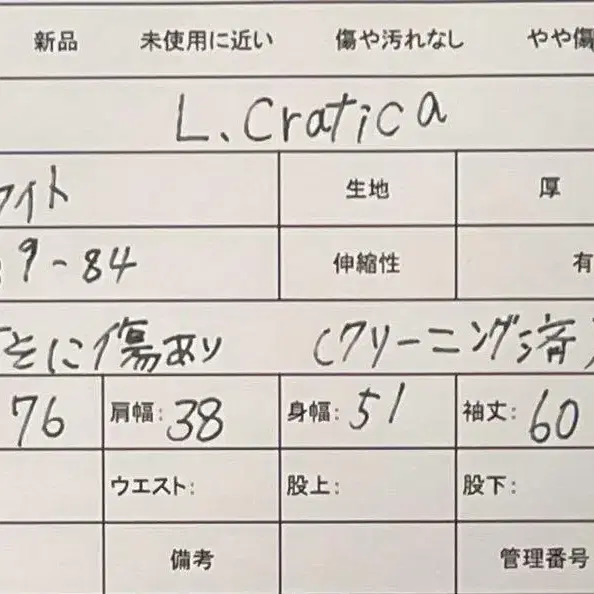 新品 未使用に近い 傷や汚れなし やや傷
L.Cratica
ワイト 生地 厚
9-84 伸縮性 有
すそに傷あり (クリーニング済)
76 肩幅: 38 身幅: 51 袖丈: 60
ウエスト: 股上: 股下:
備考 管理番号